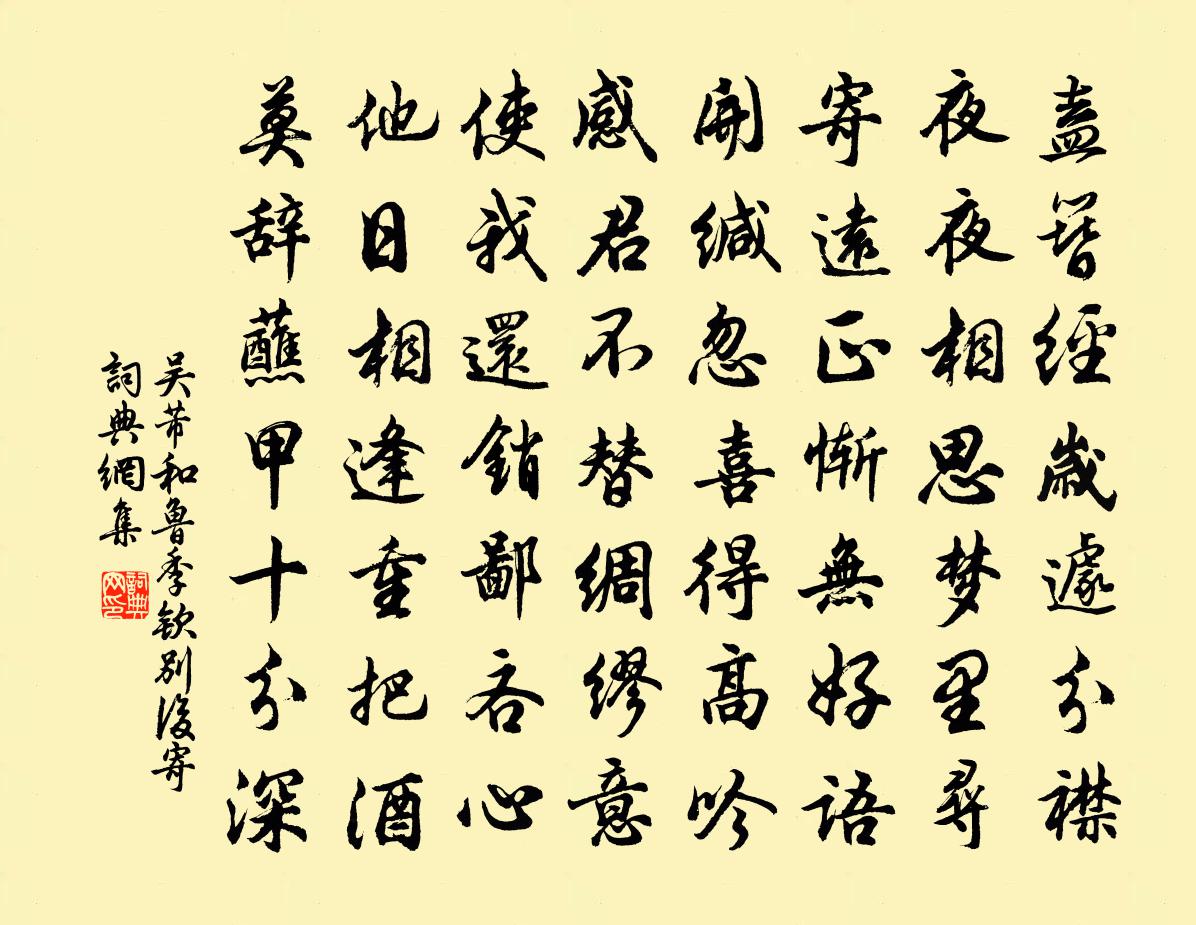 盍簪經歲遽分襟
夜夜相思梦里尋
寄遠正慚無好語
開緘忽喜得高吟
感君不替綢繆意
使我還銷鄙吝心
他日相逢重把酒
莫辞蘸甲十分深
吴芾和魯季欽別後寄
詞典網集
詞典网印